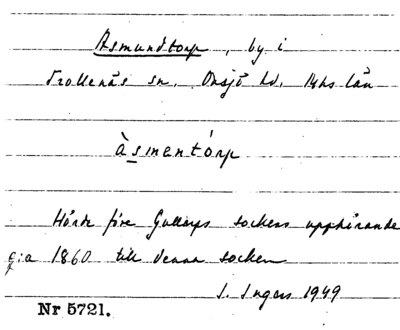 Asmundtorp, by i
Trollenäs sn. Onsjö hd. Mhs län
àsmentórp
Hörde före Gullarps sockens upphörande
c:a 1860 till denna socken
I. Ingers 1949
Nr 5721.